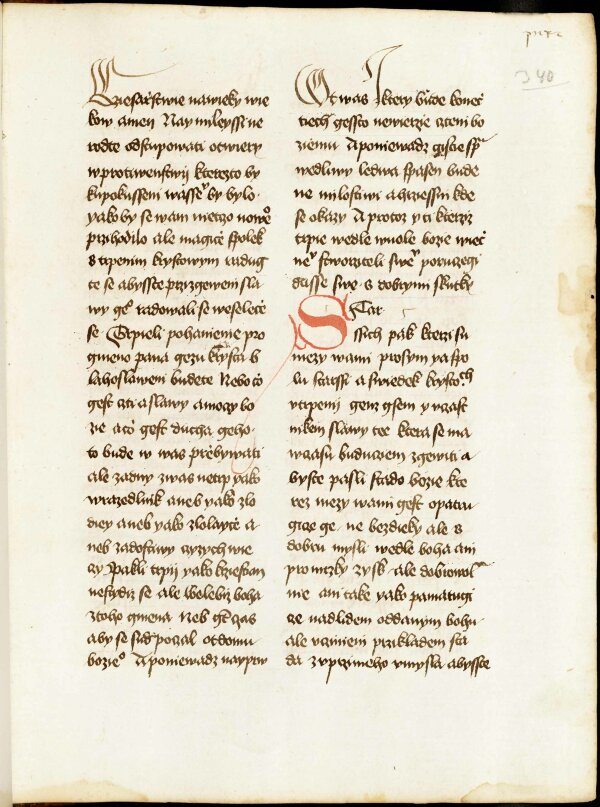 340
Ciesarstwie nawieky wie
kow amen Nay mileyssi ne
rodte odstupowati otwiery
w protiwenstwij kterezto by
ku pokusseni wasse(mu) by bylo
yako by se wam nietczo nowe(ho)
przihodilo ale magicz spolek
s trpenim krystowym radug
te se abysste przi zgeweni sla
wy ge(ho) radowali se weselecz
se Trpieli pohanienie pro
gmeno pana gezu krysta b
lahoslaweni budete Nebo czo
gest czti a slawy a moczy bo
zie a czo gest ducha geho
to bude w was przebywati
ale zadny z was netrp yako
wrazedlnik aneb yako zlo
diey aneb yako zlolaycze a
neb zadostiwy czyzych wie
czy Pakli trpij yako krziestan
nestydiz se ale welebiz boha
z toho gmena Neb g(es)t czas
aby se sud poczal ot domu
bozie(ho) A poniewadz nayprw
Ot was I ktery bude konecz
tiech gessto newierzie cztení bo
ziemu A poniewadz gisticze spra
wedliwy ledwa spasen bude
ne milostiwy a hrziessny kde
se okazy A protoz y ti kterziz
trpie wedle wuole bozie wiecz
ne(mu) stworziteli swe(mu) poruczegi
dusse swe s dobrymi skutky
Star
ssich pak kterzi su
mezy wami prosym ya spo
lu starssi a swiedek krysto(wy)ch
vtrpeni genz gsem y vczast
nikem slawy tee ktera se ma
w czasu buducziem zgewiti a
byste pasli stado bozie kte
rez mezy wami gest opatru
gicze ge ne bezdieky ale s
dobru mysli wedle boha ani
pro mrzky zysk ale dobrowol
nie ani take yako panugi
cze nad lidem oddanym bohu
ale vczinieni przikladem sta
da z vprziemeho vmysla abysste